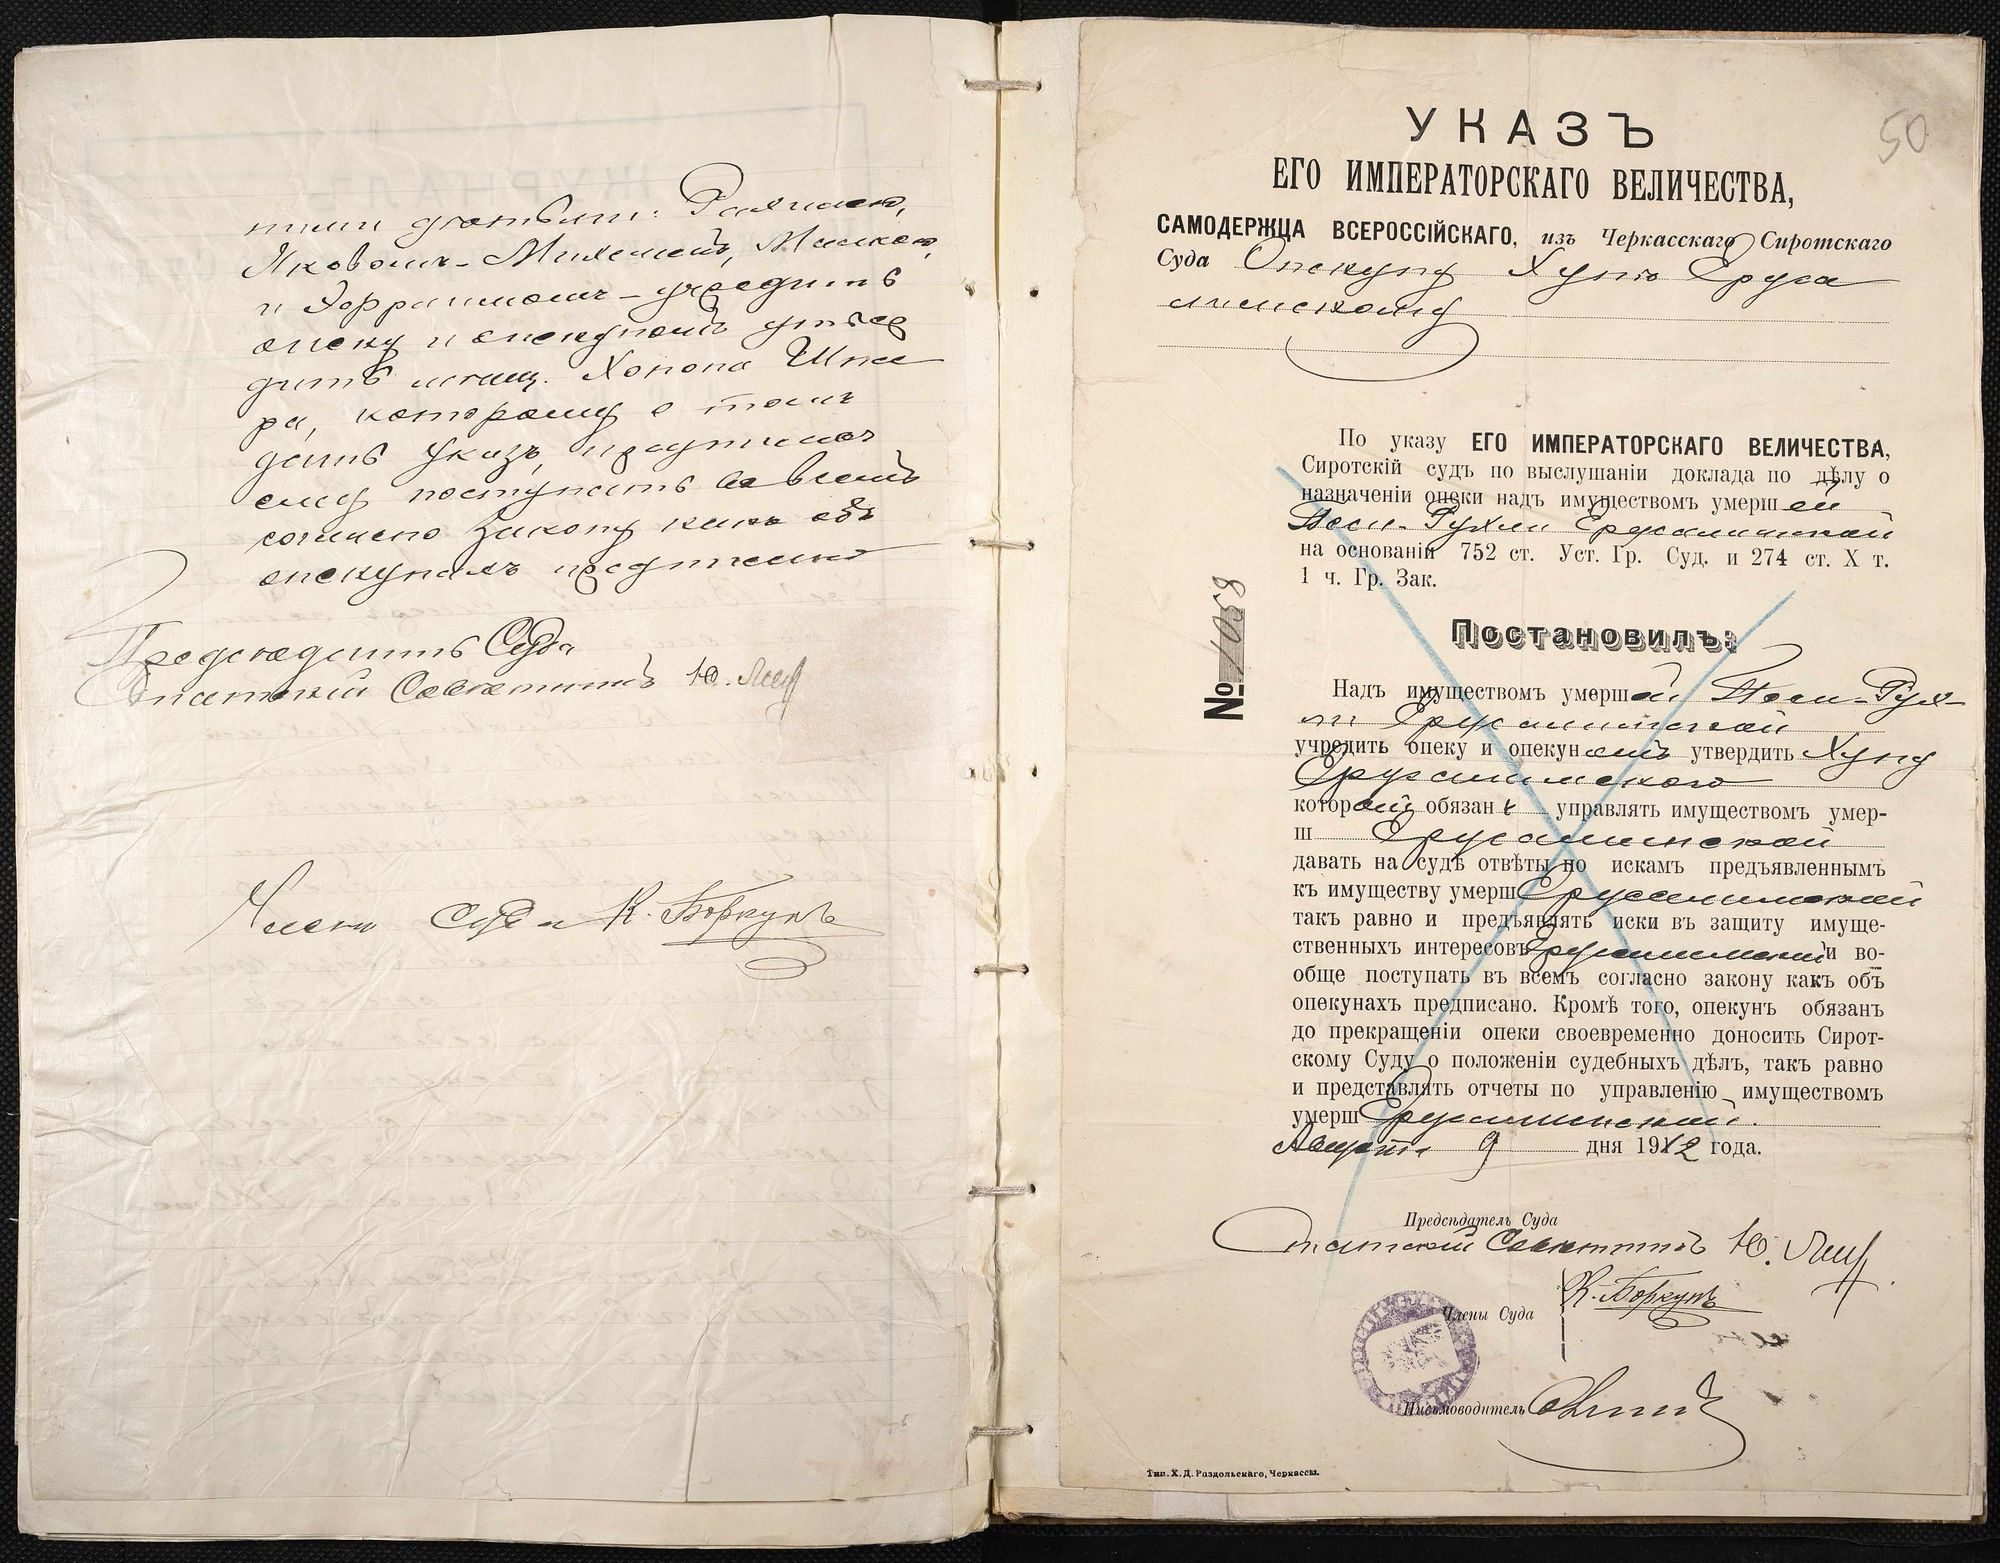 тими детьми: Рахилею,
Яковомъ-Михелемъ, Милкою,
и Эфраимомъ – учредить
опеку и опекуномъ утвер
дить мѣщ. Хонона Шпи
ра, которому о томъ
дать указъ, предписавъ
ему поступать во всемъ
согласно закону какъ объ
опекунахъ предписано
Предсѣдатель Суда
Статскій Совѣтникъ Ю.
Члены Суда К. Боркунъ
50
УКАЗЪ
ЕГО ИМПЕРАТОРСКАГО ВЕЛИЧЕСТВА,
САМОДЕРЖЦА ВСЕРОССІЙСКАГО, изъ Черкасскаго Сиротскаго
Суда Опекуну Хунѣ Еруса
лимскому
По указу ЕГО ИМПЕРАТОРСКАГО ВЕЛИЧЕСТВА,
Сиротскій судъ по выслушаніи доклада по дѣлу о
назначеніи опеки надъ имуществомъ умершей
Песи-Рухли Ерусалимской
на основаніи 752 ст. Уст. Гр. Суд. и 274 ст. X т.
1 ч. Гр. Зак.
№ 1058
Постановилъ:
Надъ имуществомъ умершей Песи-Рух-
ли Ерусалимской
учредить опеку и опекуномъ утвердить Хуну
Ерусалимского
который обязанъ управлять имуществомъ умер-
ш Ерусалимской
давать на судѣ отвѣты по искамъ предъявленнымъ
къ имуществу умерш Ерусалимской
такъ равно и предъявлять иски въ защиту имуще-
ственныхъ интересовъ Ерусалимской и во-
обще поступать въ всемъ согласно закону какъ объ
опекунахъ предписано. Кромѣ того, опекунъ обязанъ
до прекращеніи опеки своевременно доносить Сирот-
скому Суду о положеніи судебныхъ дѣлъ, такъ равно
и представлять отчеты по управленію имуществомъ
умерш Ерусалимской.
Августа 9 дня 1912 года.
Предсѣдатель Суда
Статскій Совѣтникъ Ю.
К. Боркунъ
Члены Суда
Письмоводитель
Тип. Х. Д. Раздольскаго, Черкассы.